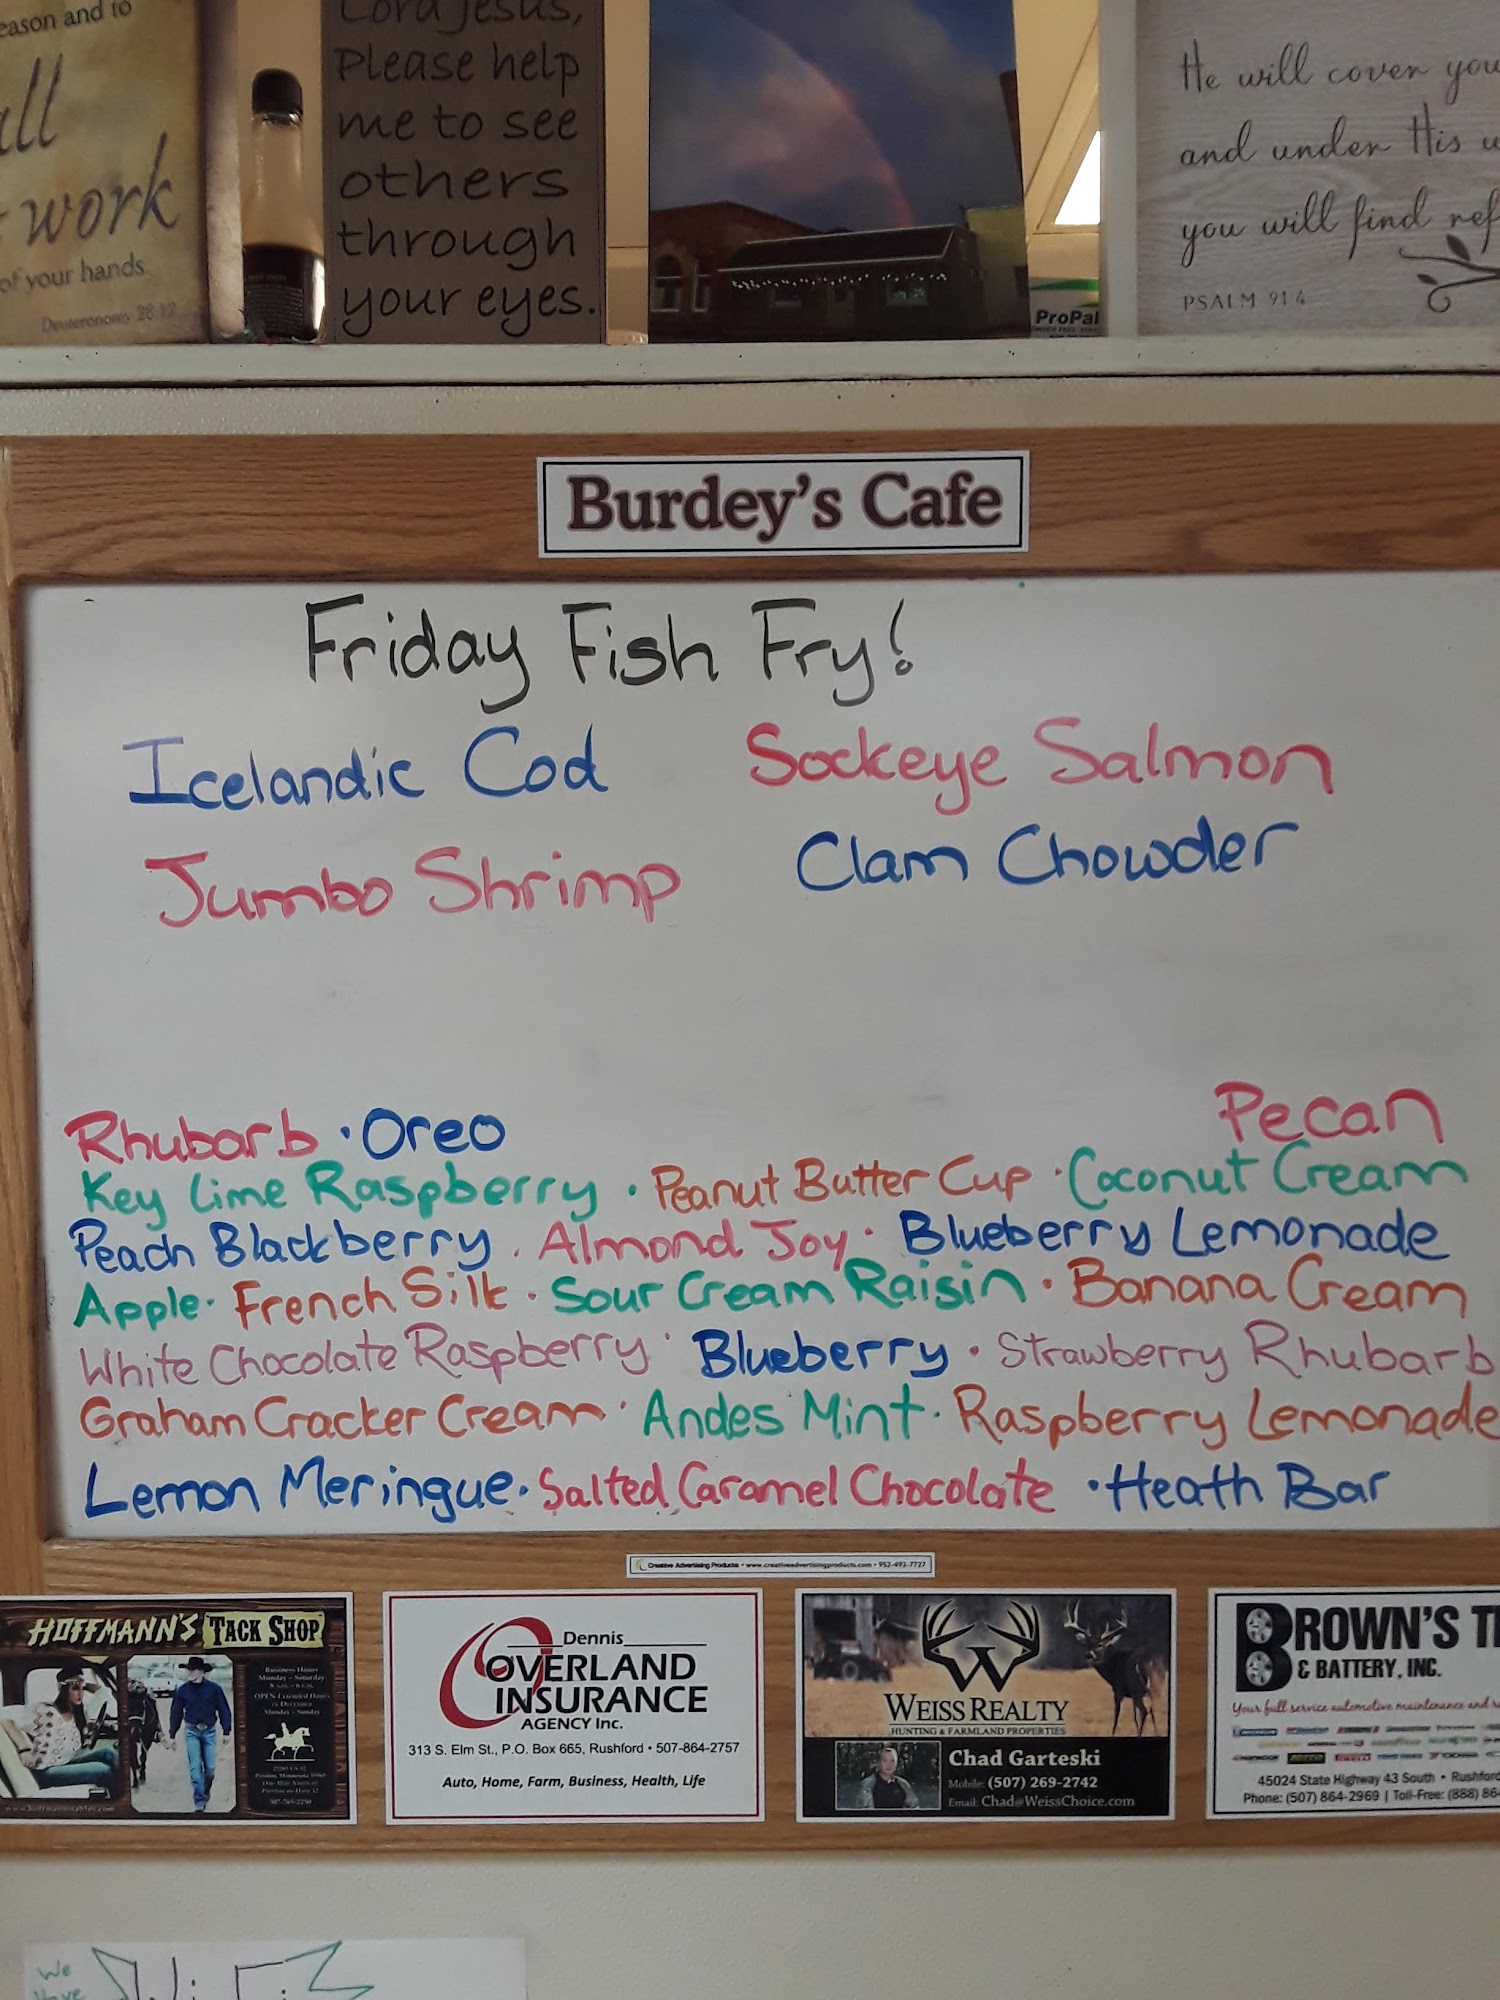 eason and to
all
work
of your hands.
Deuteronomy 28:12
Lord Jesus,
Please help
me to see
others
through
your eyes.
ProPal
He will cover you
and under His
you will find ref
PSALM 91:4
Burdey's Cafe
Friday Fish Fry!
Icelandic Cod Sockeye Salmon
Jumbo Shrimp Clam Chowder
Rhubarb · Oreo Pecan
Key Lime Raspberry · Peanut Butter Cup · Coconut Cream
Peach Blackberry · Almond Joy · Blueberry Lemonade
Apple · French Silk · Sour Cream Raisin · Banana Cream
White Chocolate Raspberry · Blueberry · Strawberry Rhubarb
Graham Cracker Cream · Andes Mint · Raspberry Lemonade
Lemon Meringue · Salted Caramel Chocolate · Heath Bar
Creative Advertising Products • www.creativeadvertisingproducts.com • 952-492-7727
HOFFMANN'S TACK SHOP
Business Hours
Monday – Saturday
OPEN Extended Hours
in December
Monday – Sunday
507-765-2250
Dennis
OVERLAND
INSURANCE
AGENCY Inc.
313 S. Elm St., P.O. Box 665, Rushford • 507-864-2757
Auto, Home, Farm, Business, Health, Life
W
WEISS REALTY
HUNTING & FARMLAND PROPERTIES
Chad Garteski
Mobile: (507) 269-2742
Email: Chad@WeissChoice.com
BROWN'S TI
& BATTERY, INC.
Your full service automotive maintenance and
45024 State Highway 43 South • Rushford
Phone: (507) 864-2969 | Toll-Free: (888) 86
We
Have
WiFi